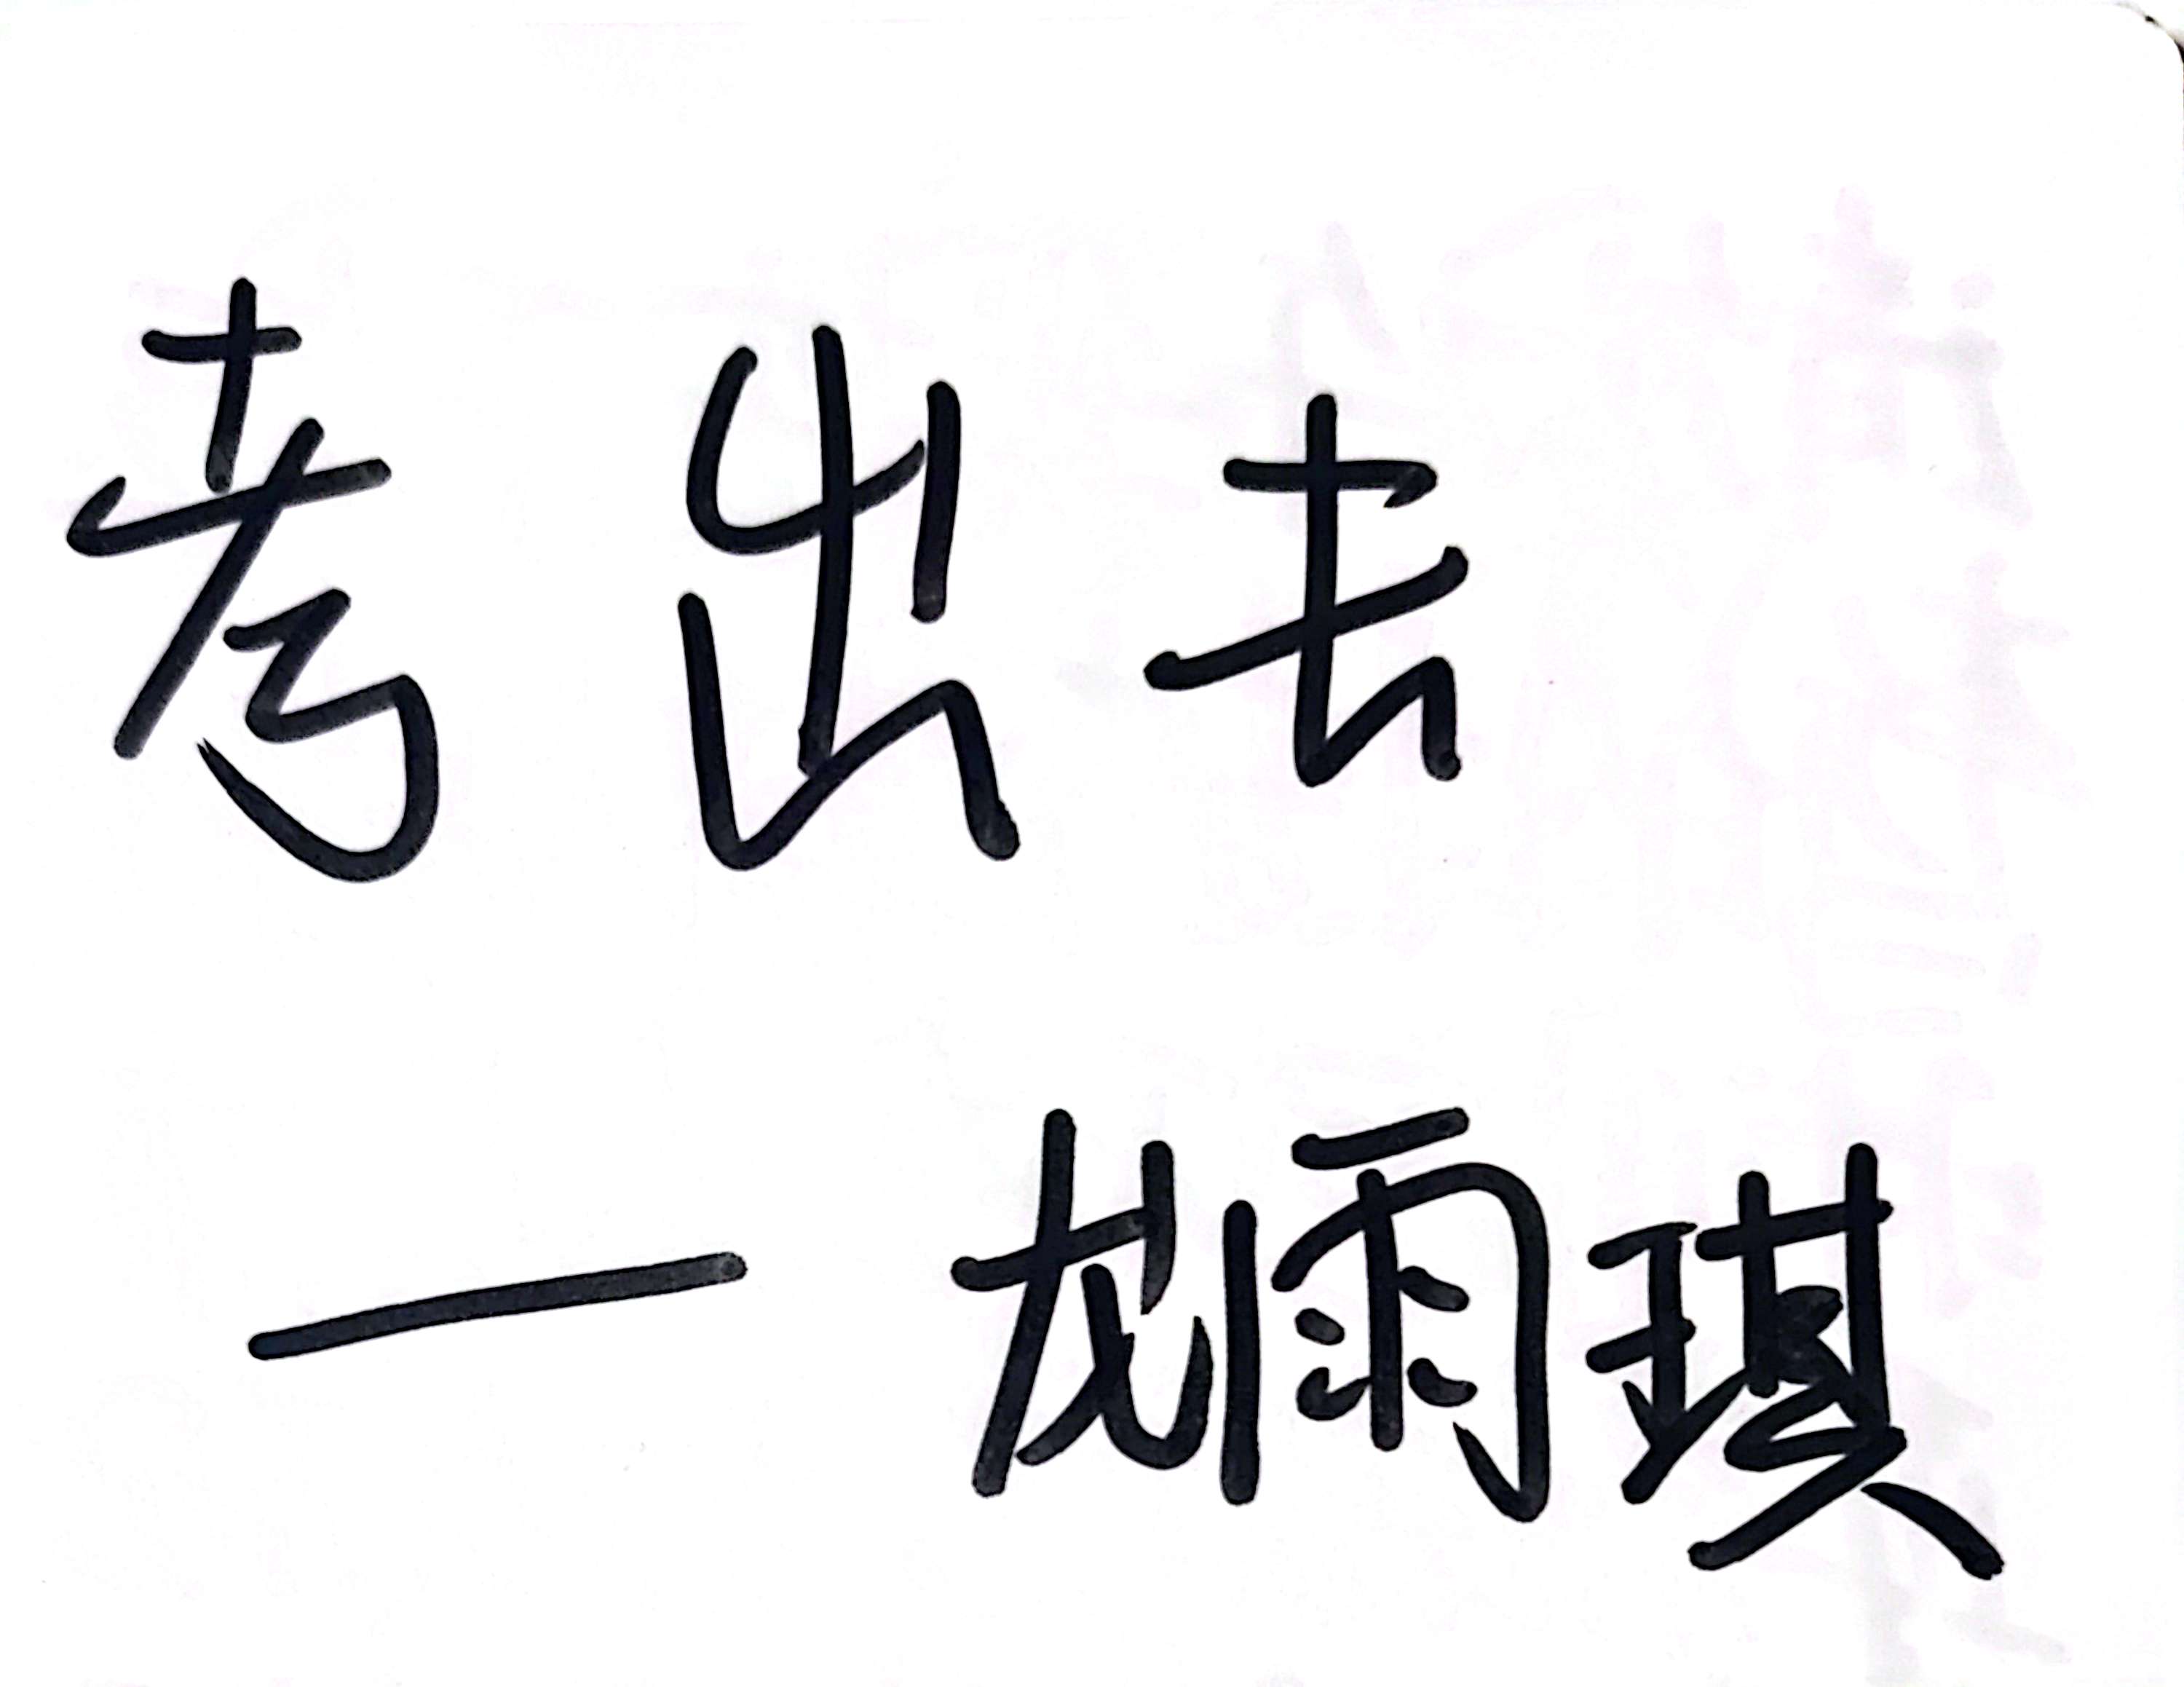 考出去
—龙雨琪